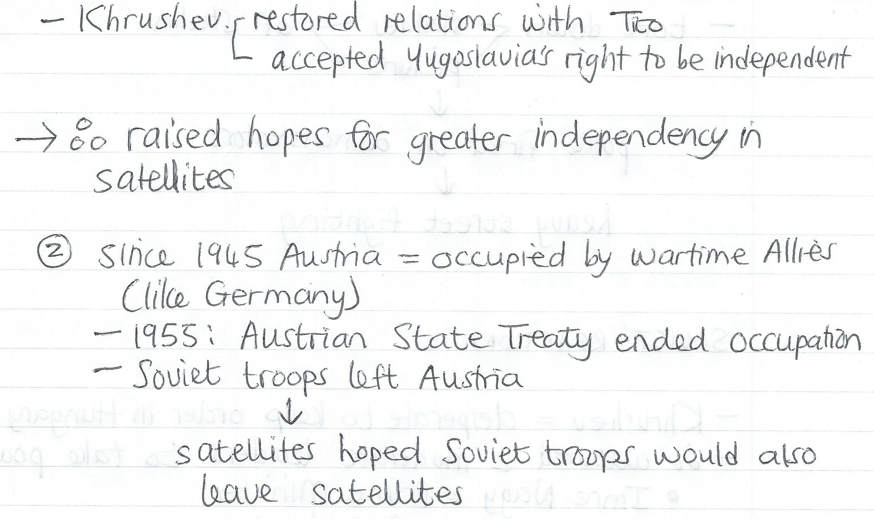 - Khrushev. restored relations with Tito
accepted Yugoslavia's right to be independent
→ ∴ raised hopes for greater independency in
satellites
② since 1945 Austria = occupied by wartime Allies
(like Germany)
- 1955: Austrian State Treaty ended occupation
- Soviet troops left Austria
↓
satellites hoped Soviet troops would also
leave satellites